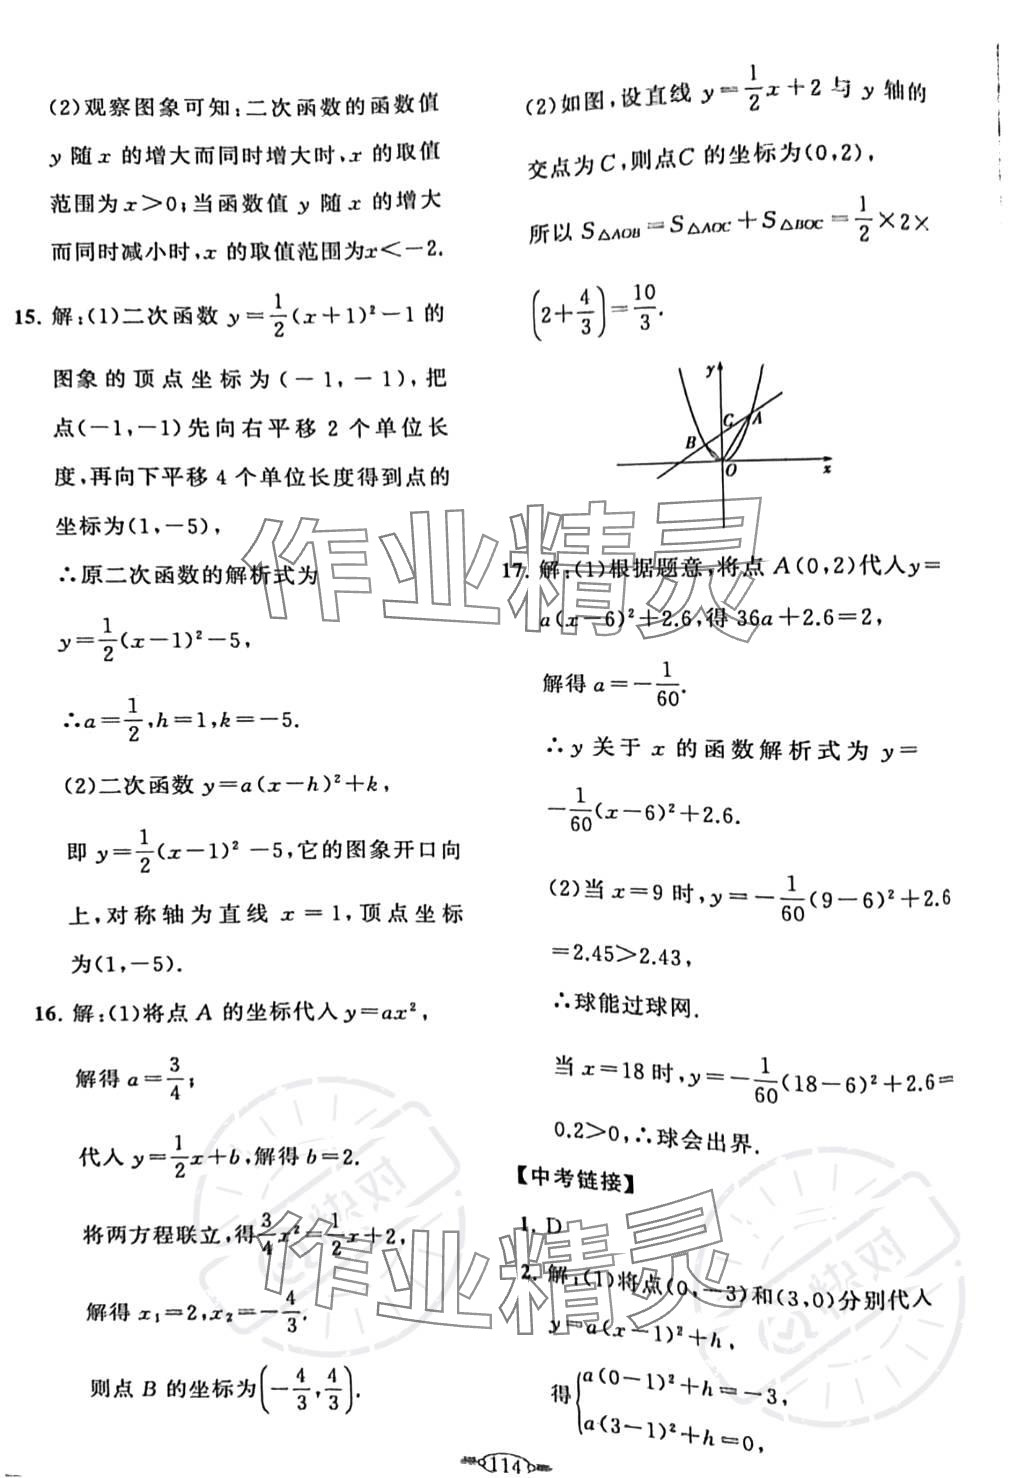 (2)观察图象可知:二次函数的函数值
y 随 x 的增大而同时增大时,x 的取值
范围为 x>0;当函数值 y 随 x 的增大
而同时减小时,x 的取值范围为x<-2.
15. 解:(1)二次函数 y=1/2(x+1)²-1 的
图象的顶点坐标为(-1,-1),把
点(-1,-1)先向右平移 2 个单位长
度,再向下平移 4 个单位长度得到点的
坐标为(1,-5),
∴原二次函数的解析式为
y=1/2(x-1)²-5,
∴a=1/2,h=1,k=-5.
(2)二次函数 y=a(x-h)²+k,
即 y=1/2(x-1)²-5,它的图象开口向
上,对称轴为直线 x=1,顶点坐标
为(1,-5).
16. 解:(1)将点 A 的坐标代入 y=ax²,
解得 a=3/4;
代入 y=1/2x+b,解得 b=2.
将两方程联立,得3/4x²=1/2x+2,
解得 x₁=2,x₂=-4/3.
则点 B 的坐标为(-4/3,4/3).
(2)如图,设直线 y=1/2x+2 与 y 轴的
交点为 C,则点C 的坐标为(0,2),
所以 S△AOB=S△AOC+S△BOC=1/2×2×
(2+4/3)=10/3.
y
C
A
B
O
x
17. 解:(1)根据题意,将点 A(0,2)代入y=
a(x-6)²+2.6,得 36a+2.6=2,
解得 a=-1/60.
∴y 关于 x 的函数解析式为 y=
-1/60(x-6)²+2.6.
(2)当 x=9 时,y=-1/60(9-6)²+2.6
=2.45>2.43,
∴球能过球网.
当 x=18 时,y=-1/60(18-6)²+2.6=
0.2>0,∴球会出界.
【中考链接】
1. D
2. 解:(1)将点(0,-3)和(3,0)分别代入
y=a(x-1)²+h,
得{a(0-1)²+h=-3,
a(3-1)²+h=0,
114
作业精灵
作业精灵
快对
快对